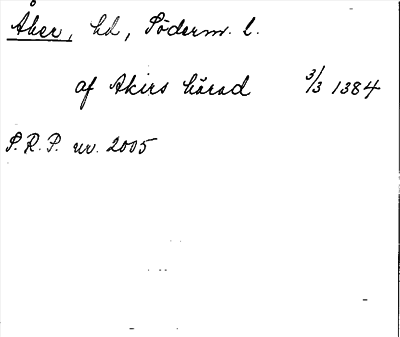 Åker, hd, Söderm. l.
af Akirs härad 3/3 1384
S.R.P. nr. 2005